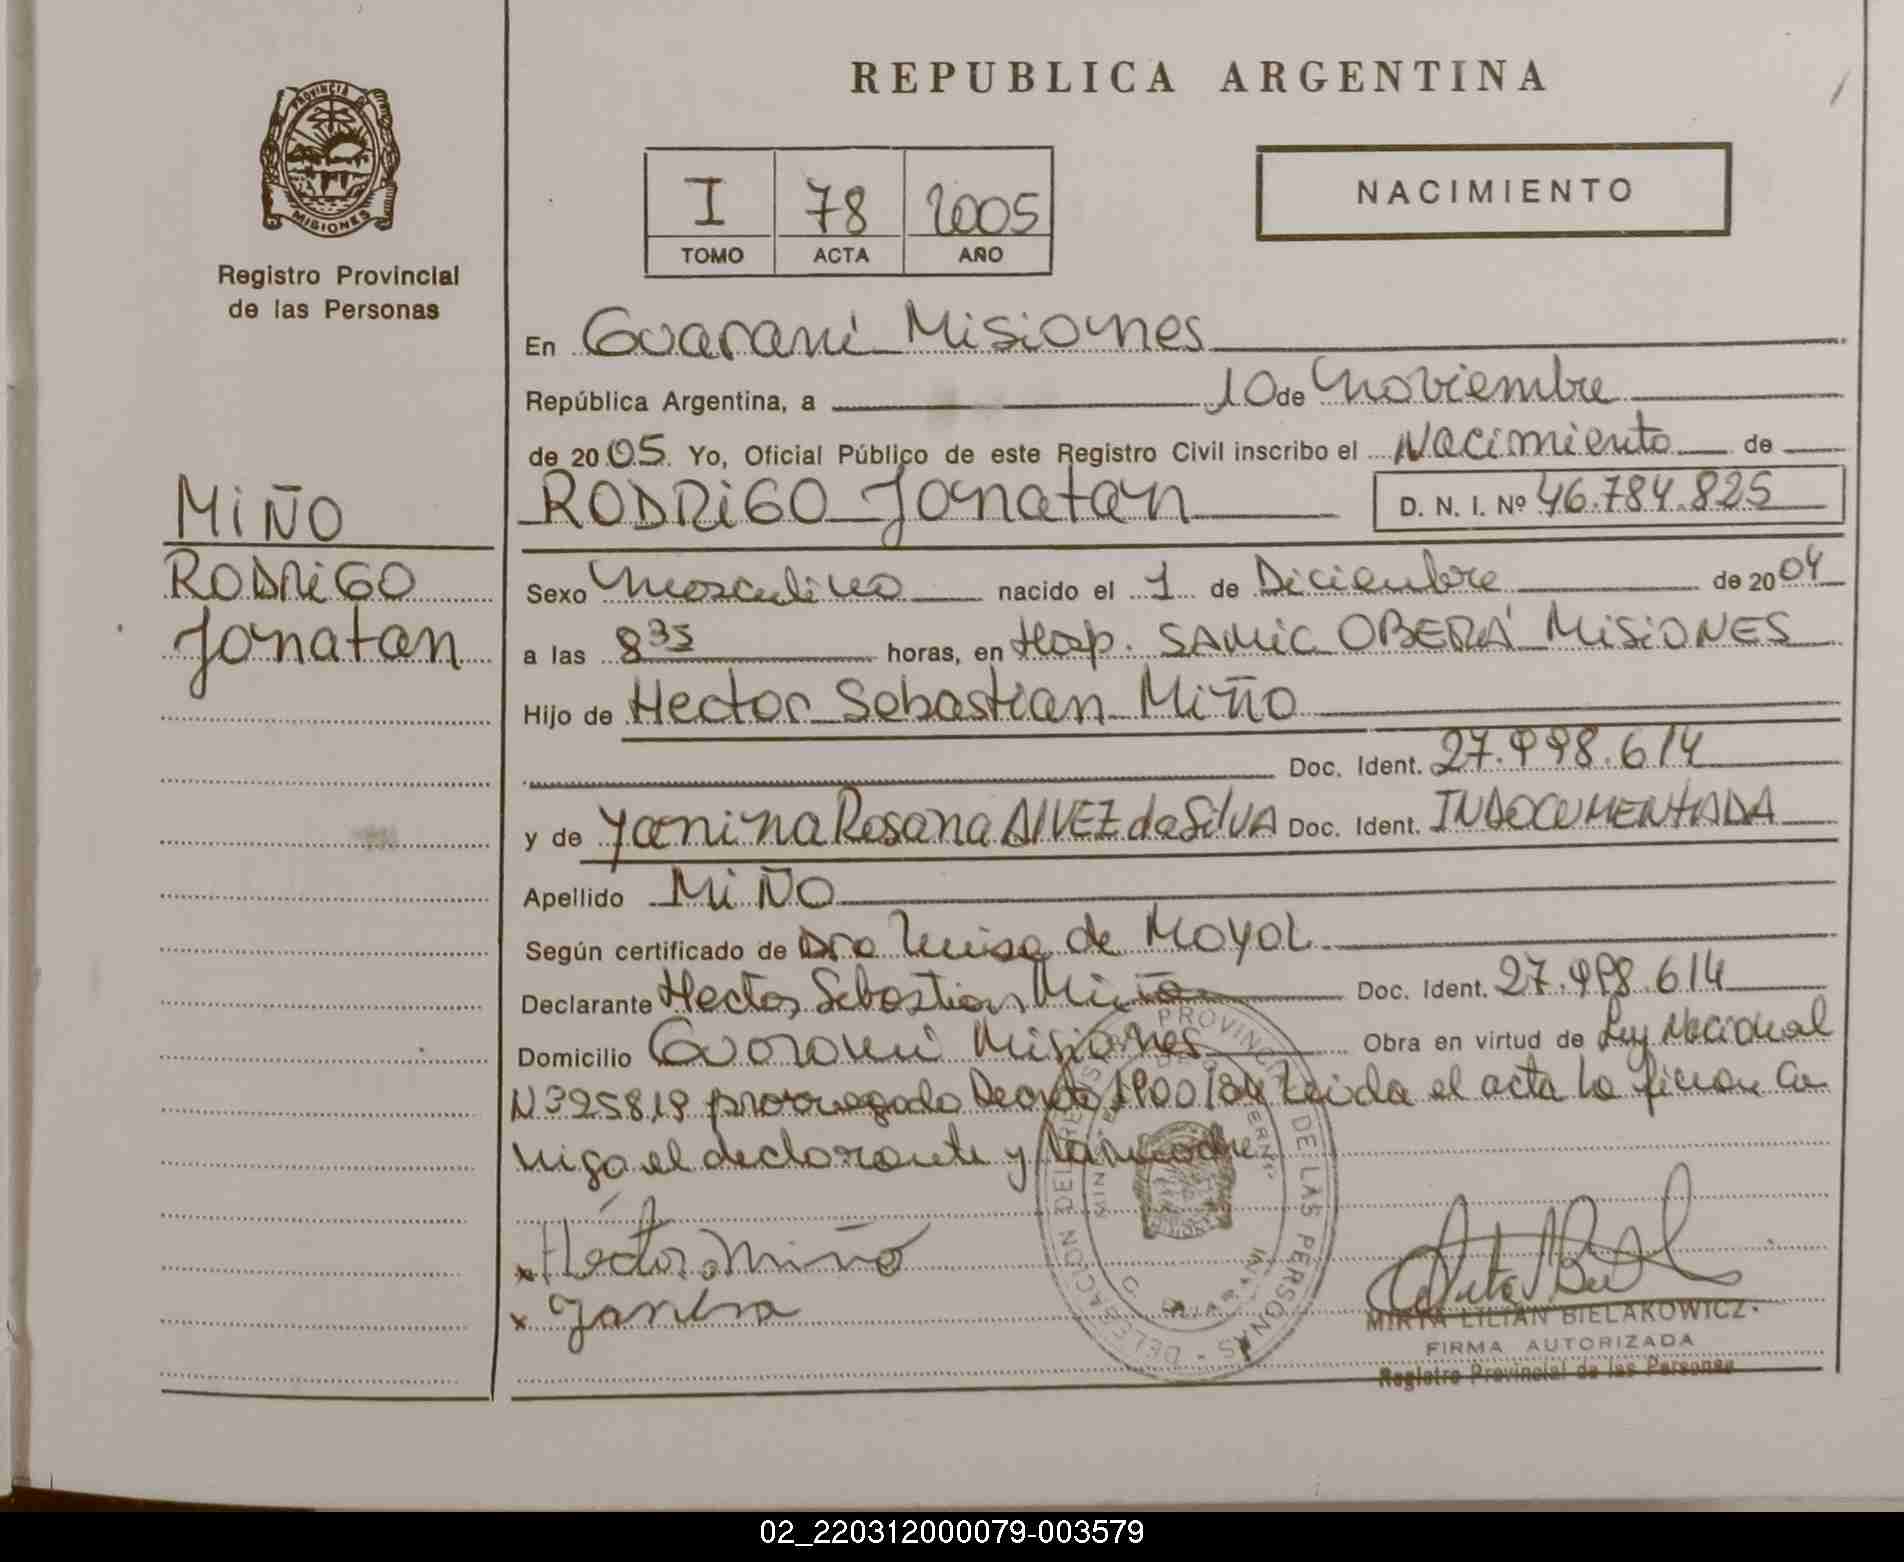 REPUBLICA ARGENTINA
PROVINCIA DE
MISIONES
Registro Provincial
de las Personas
I 78 2005
TOMO ACTA AÑO
NACIMIENTO
En Guarani Misiones
República Argentina, a 10 de Noviembre
de 2005. Yo, Oficial Público de este Registro Civil inscribo el Nacimiento de
RODRiGO Jonatan D. N. I. Nº 46.784.825
MiÑO
RODRiGO
Jonatan
Sexo Masculino nacido el 1 de Diciembre de 2004
a las 8 35 horas, en Hosp. SAMiC OBERÁ MiSiONES
Hijo de Hector Sebastian Miño
Doc. Ident. 27.998.614
y de Yanina Rosana AlVEZ da SilVA Doc. Ident. INDOCUMENTADA
Apellido MiÑO
Según certificado de Dra Luisa de Moyol
Declarante Hector Sebastian Miño Doc. Ident. 27.998.614
Domicilio Guarani Misiones Obra en virtud de Ley Nacional
Nº25819 prorrogado Decreto 1900/04 Leida el acta la firman con
migo el declarante y la madre
Hector Miño
MIRTA LILIAN BIELAKOWICZ
FIRMA AUTORIZADA
Registro Provincial de las Personas
02_220312000079-003579